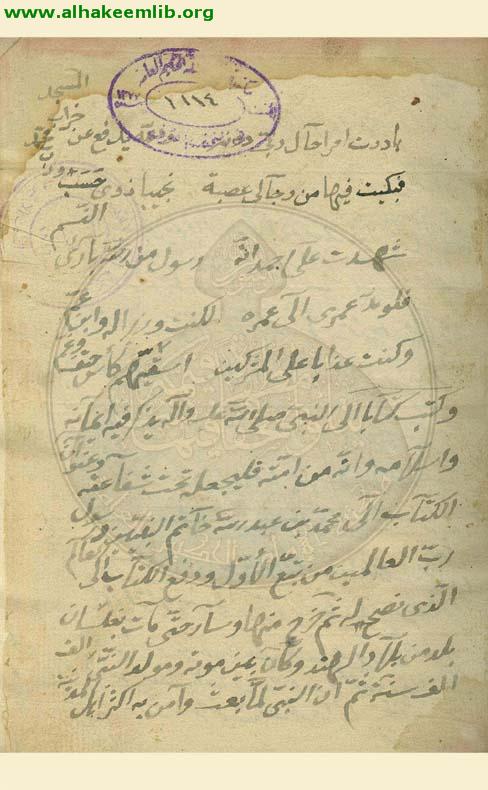 www.alhakeemlib.org
المسجد
١١١٤
خراب
يدفع عن محمد
فبكيت فيها من رجالى عصبة نجبا ذوى حسب
شهدت على احمد انه رسول من الله بارى
النسم
فلو مد عمرى الى عمره لكنت وزيرا له وابن عم
وكنت عذابا على المشركين اسقيهم كأس حتف وغم
وكتب كتابا الى النبى صلى الله عليه وآله يذكر فيه ايمانه
واسلامه وانه من امته فليجعله تحت شفاعته وعنوان
الكتاب الى محمد بن عبد الله خاتم النبيين ورسول
رب العالمين من تبع الأول ودفع الكتاب الى العالم
الذى نصح له ثم خرج منها وسار حتى مات بغلسان
بلد من بلاد الهند وكان بين موته ومولد النبى
الف سنة ثم ان النبى لما بعث وآمن به اكثر اهل